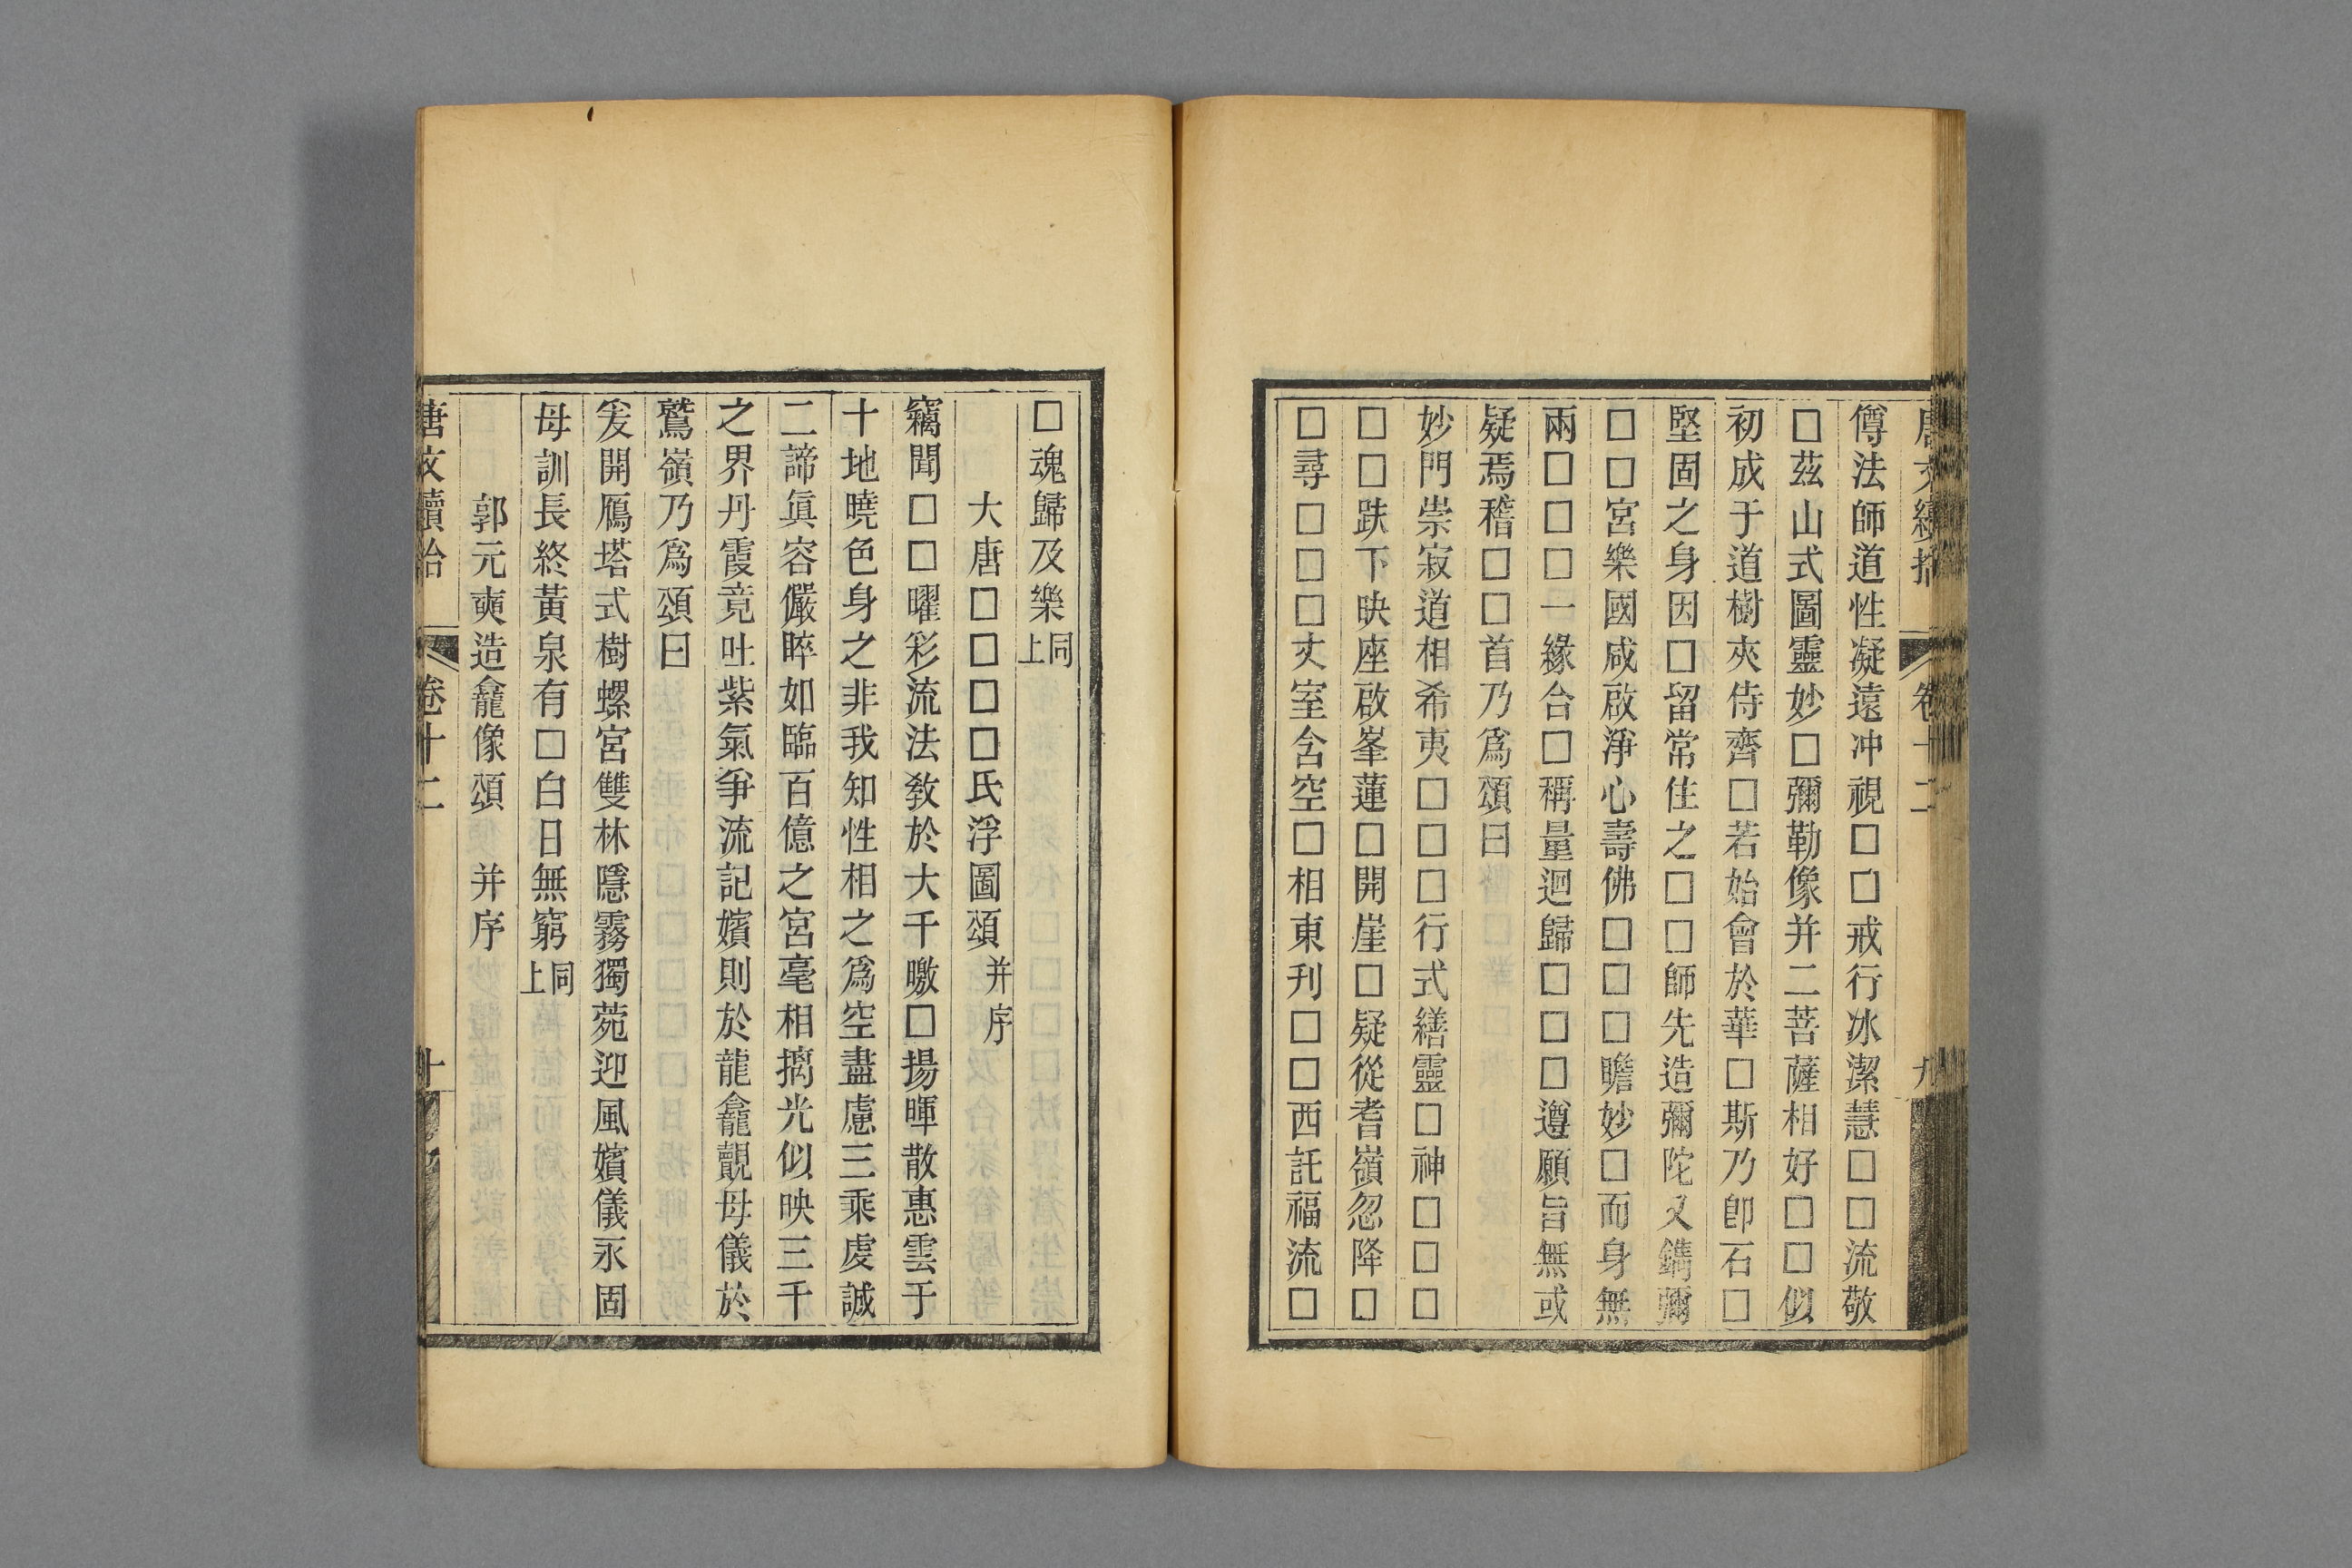 唐文續拾 卷十二 九
僔法師道性凝遠冲視□□戒行冰潔慧□□流敬
□茲山式圖靈妙□彌勒像并二菩薩相好□□似
初成于道樹夾侍齊□若始會於華□斯乃卽石□
堅固之身因□留常住之□□師先造彌陀又鐫彌
□□宮樂國咸啟淨心壽佛□□□瞻妙□而身無
兩□□□一緣合□稱量迴歸□□□遵願旨無或
疑焉稽□□首乃爲頌曰
妙門崇寂道相希夷□□□行式繕靈□神□□□
□□趺下映座啟峯蓮□開崖□疑從耆嶺忽降□
□尋□□□丈室含空□相東刋□□西託福流□
□魂歸及樂同上
大唐□□□□氏浮圖頌并序
竊聞□□曜彩流法敎於大千暾□揚暉散惠雲于
十地曉色身之非我知性相之爲空盡慮三乘虔誠
二諦眞容儼睟如臨百億之宮毫相摛光似映三千
之界丹霞竟吐紫氣爭流記嬪則於龍龕覿母儀於
鷲嶺乃爲頌曰
爰開鴈塔式樹螺宮雙林隱霧獨菀迎風嬪儀永固
母訓長終黃泉有□白日無窮同上
郭元奭造龕像頌 并序
唐文續拾 卷十二 十